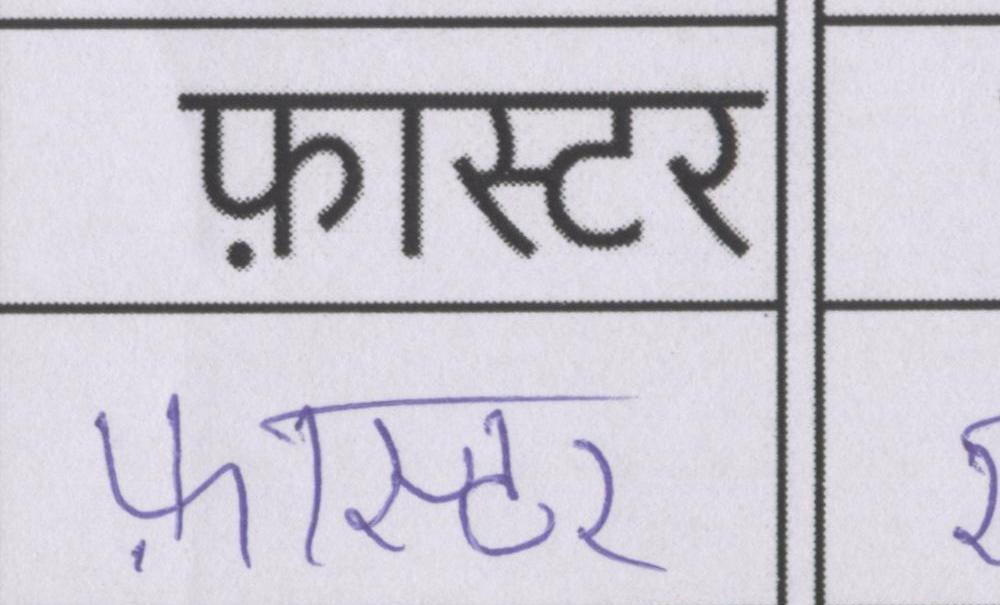 फ़ास्टर
फ़ास्टर